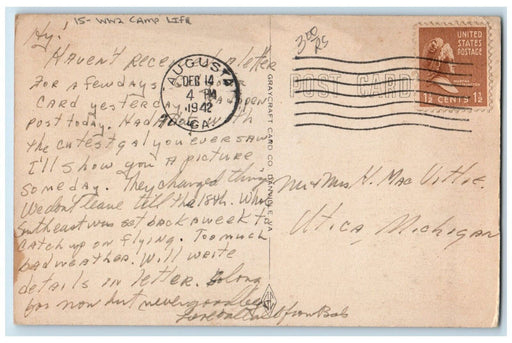 15- WW2 CAMP LIFE
3.00
RS
Hy!
HAVEN'T received a letter
FOR A few days
CARD yesterday. open
post today. Had with
the cutest gal you ever saw
I'll show you a picture
someday. They changed things
We don't leave till the 18th. Whole
Southeast was set back a week to
CATCH up on flying. Too much
bad weather. Will write
details in letter. So long
for now but never goodbye
Love to all from Bob
AUGUSTA
DEC 14
4 PM
1942
GA.
POST CARD
UNITED
STATES
POSTAGE
1½ CENTS 1½
GRAYCRAFT CARD CO. DANVILLE, VA
Mr & Mrs H. Mac Vittie.
Utica, Michigan